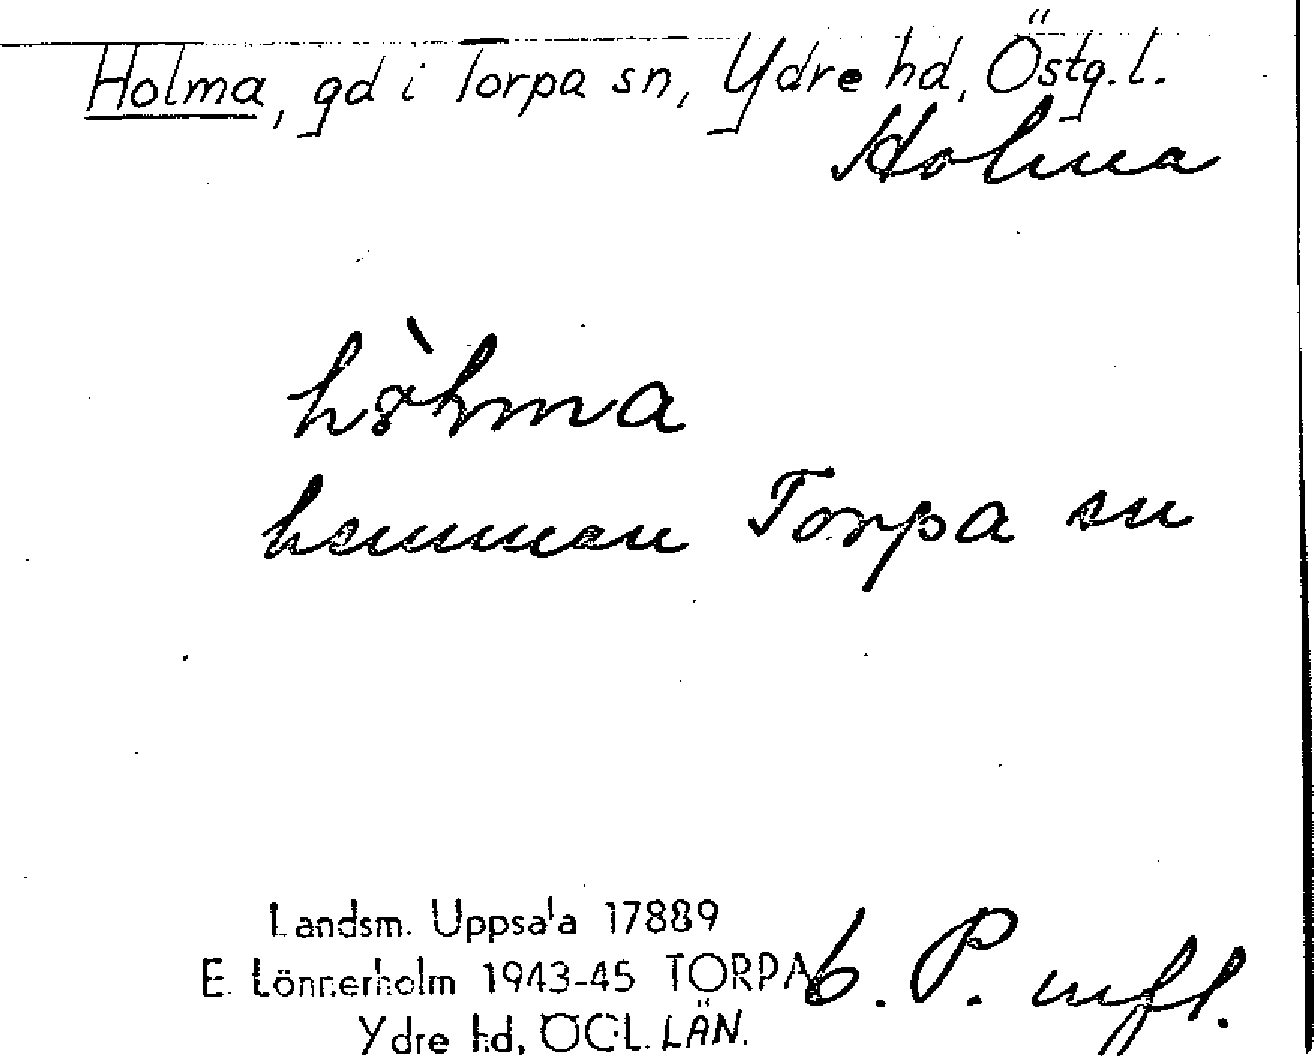 Holma, gd i Torpa sn, Ydre hd, Östg.l.
Holma
hemman Torpa sn
Landsm. Uppsala 17889
E. Lönnerholm 1943-45 TORPA
Ydre hd, ÖGL. LÄN.
P. mfl.